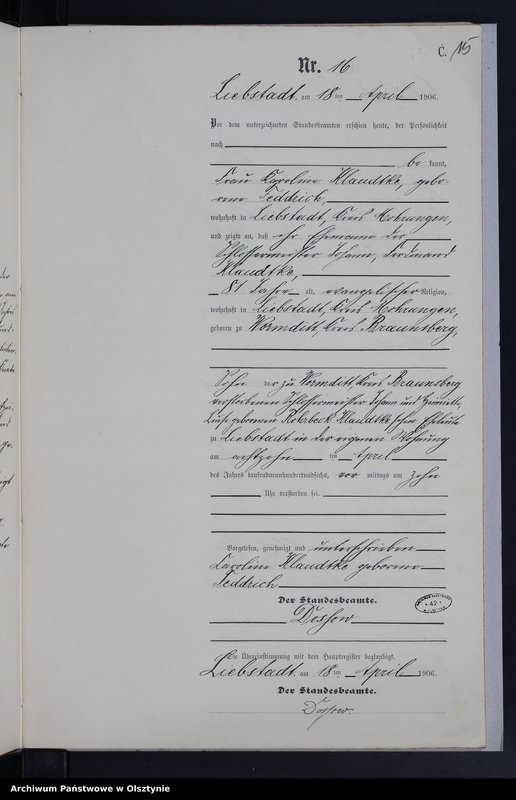 C. 15
Nr. 16
Liebstadt, am 18 ten April 1906.
Vor dem unterzeichneten Standesbeamten erschien heute, der Persönlichkeit
nach
be kannt,
Frau Karoline Klaudtke, gebo-
rene Teddrich,
wohnhaft in Liebstadt, Kreis Mohrungen,
und zeigte an, daß ihr Ehemann der
Schlossermeister Johann, Ferdinand
Klaudtke,
81 Jahre alt, evangelischer Religion,
wohnhaft in Liebstadt, Kreis Mohrungen,
geboren zu Wormditt, Kreis Braunsberg,
Sohn der zu Wormditt, Kreis Braunsberg
verstorbenen Schlossermeister Johann und Henriette
Luise geborenen Rohrbeck Klaudtke'schen Eheleute
zu Liebstadt in der eigenen Wohnung
am achtzehn ten April
des Jahres tausendneunhundertundsechs, vor mittags um zehn
Uhr verstorben sei.
Vorgelesen, genehmigt und unterschrieben
Karoline Klaudtke geborene
Teddrich
Der Standesbeamte.
Dossow
47
Die Übereinstimmung mit dem Hauptregister beglaubigt.
Liebstadt, am 18 ten April 1906.
Der Standesbeamte.
Dossow.
Archiwum Państwowe w Olsztynie